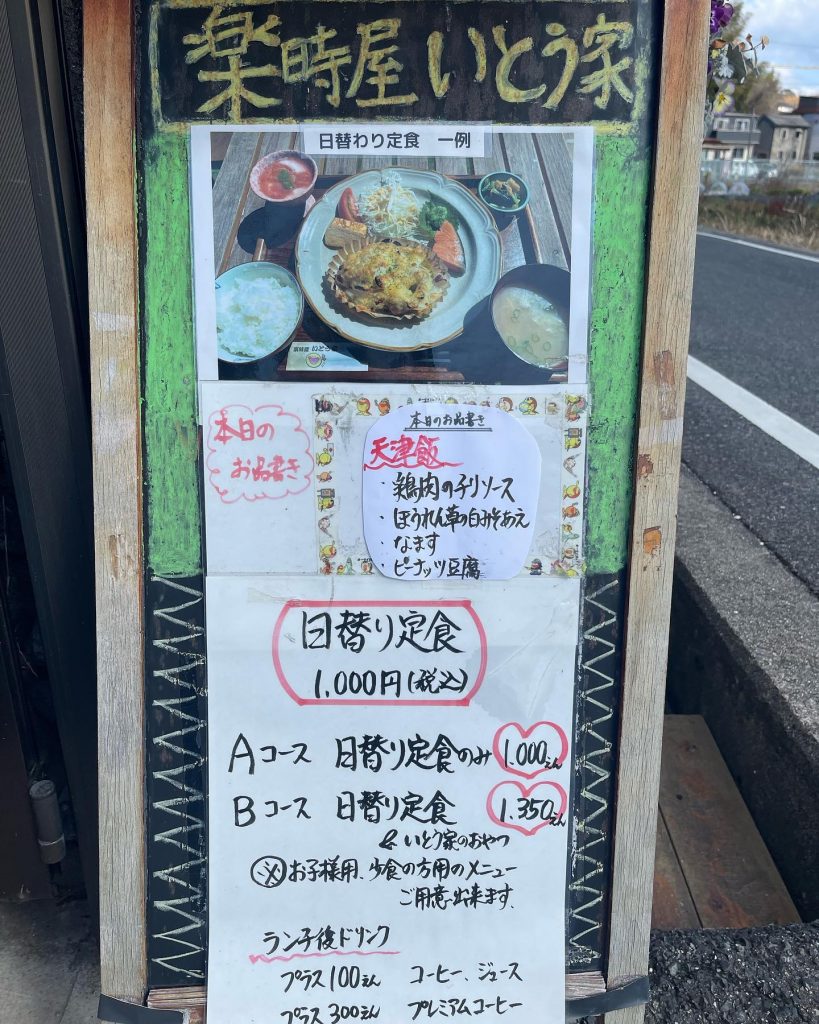 楽時屋 いとう家
日替わり定食 一例
楽時屋 いとう家
本日の
お品書き
本日のお品書き
天津飯
・鶏肉のチリソース
・ほうれん草の白みそあえ
・なます
・ピーナッツ豆腐
日替り定食
1.000円(税込)
Aコース 日替り定食のみ 1.000えん
Bコース 日替り定食 1.350えん
& いとう家のおやつ
※お子様用、少食の方用のメニュー
ご用意出来ます.
ランチ後ドリンク
プラス100えん コーヒー、ジュース
プラス300えん プレミアムコーヒー